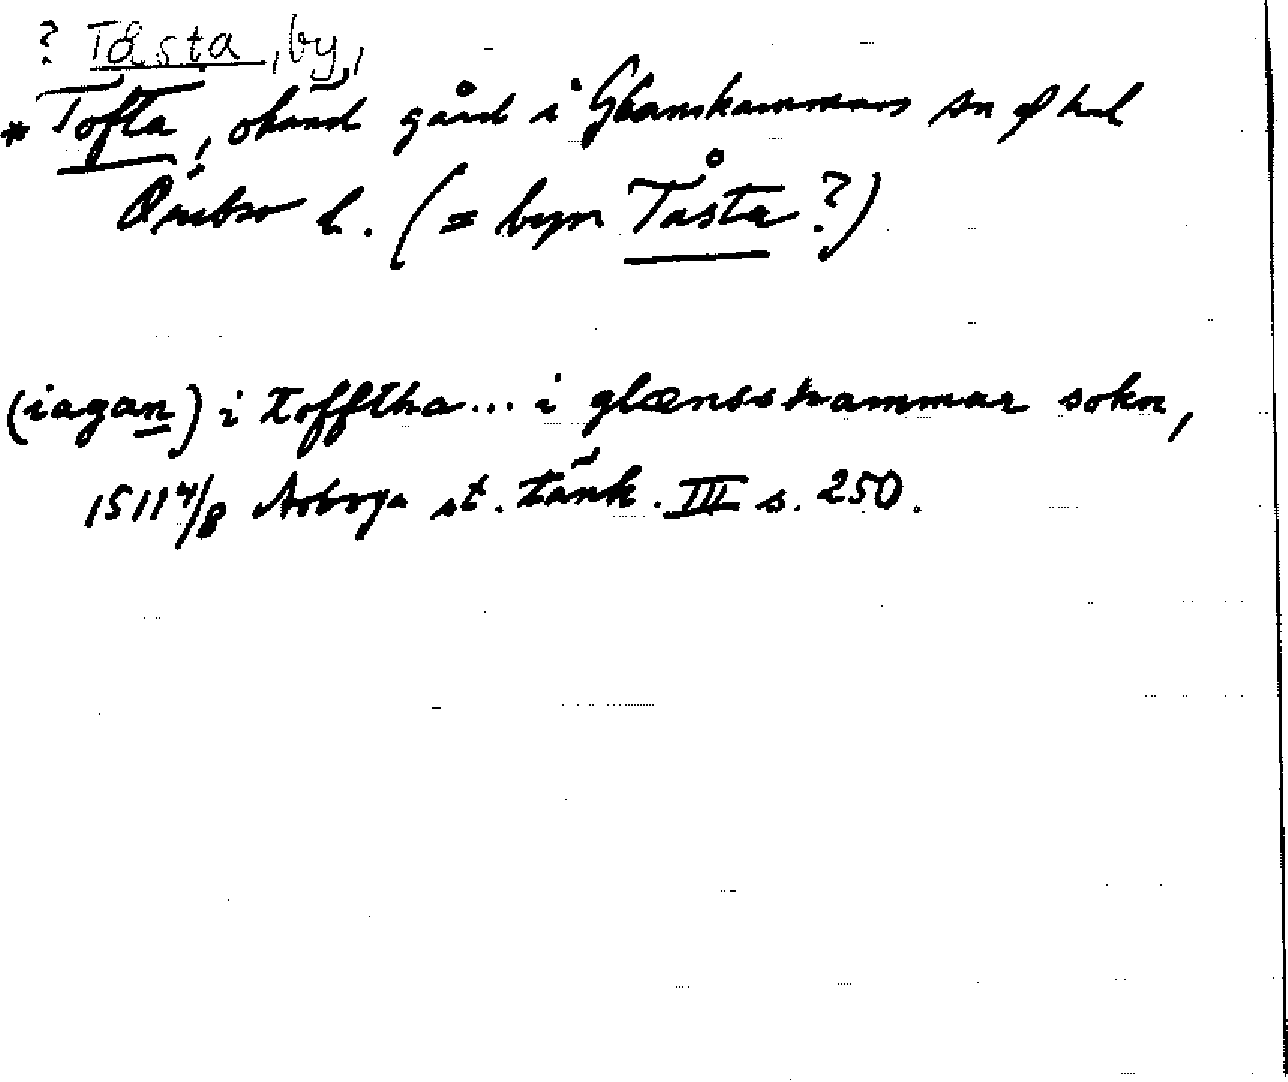 ? Tåsta, by,
* Tofta, okänd gård i Glanshammars sn o hd
Örebro l. (= byn Tåsta ?)
(iagan) i tofftha... i glænsshammar sokn,
1511 4/8 Arboga st. tänk. III s. 250.